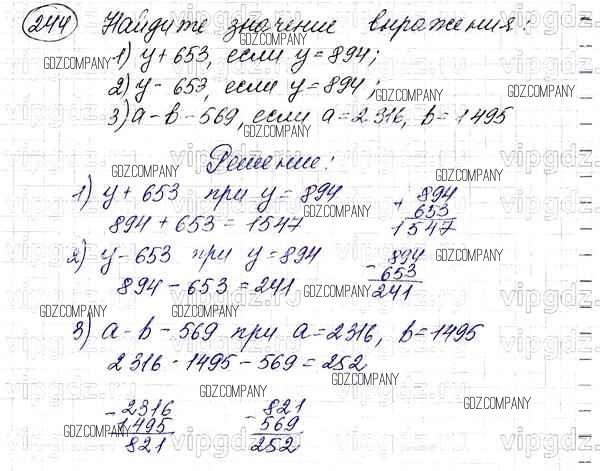 244 Найдите значение выражения:
1) y + 653, если y = 894;
2) y - 653, если y = 894;
3) a - b - 569, если a = 2316, b = 1495
Решение:
1) y + 653 при y = 894
894 + 653 = 1547
+ 894
653
1547
2) y - 653 при y = 894
894 - 653 = 241
- 894
653
241
3) a - b - 569 при a = 2316, b = 1495
2316 - 1495 - 569 = 252
- 2316
1495
821
- 821
569
252
GDZ.COMPANY
vipgdz.ru